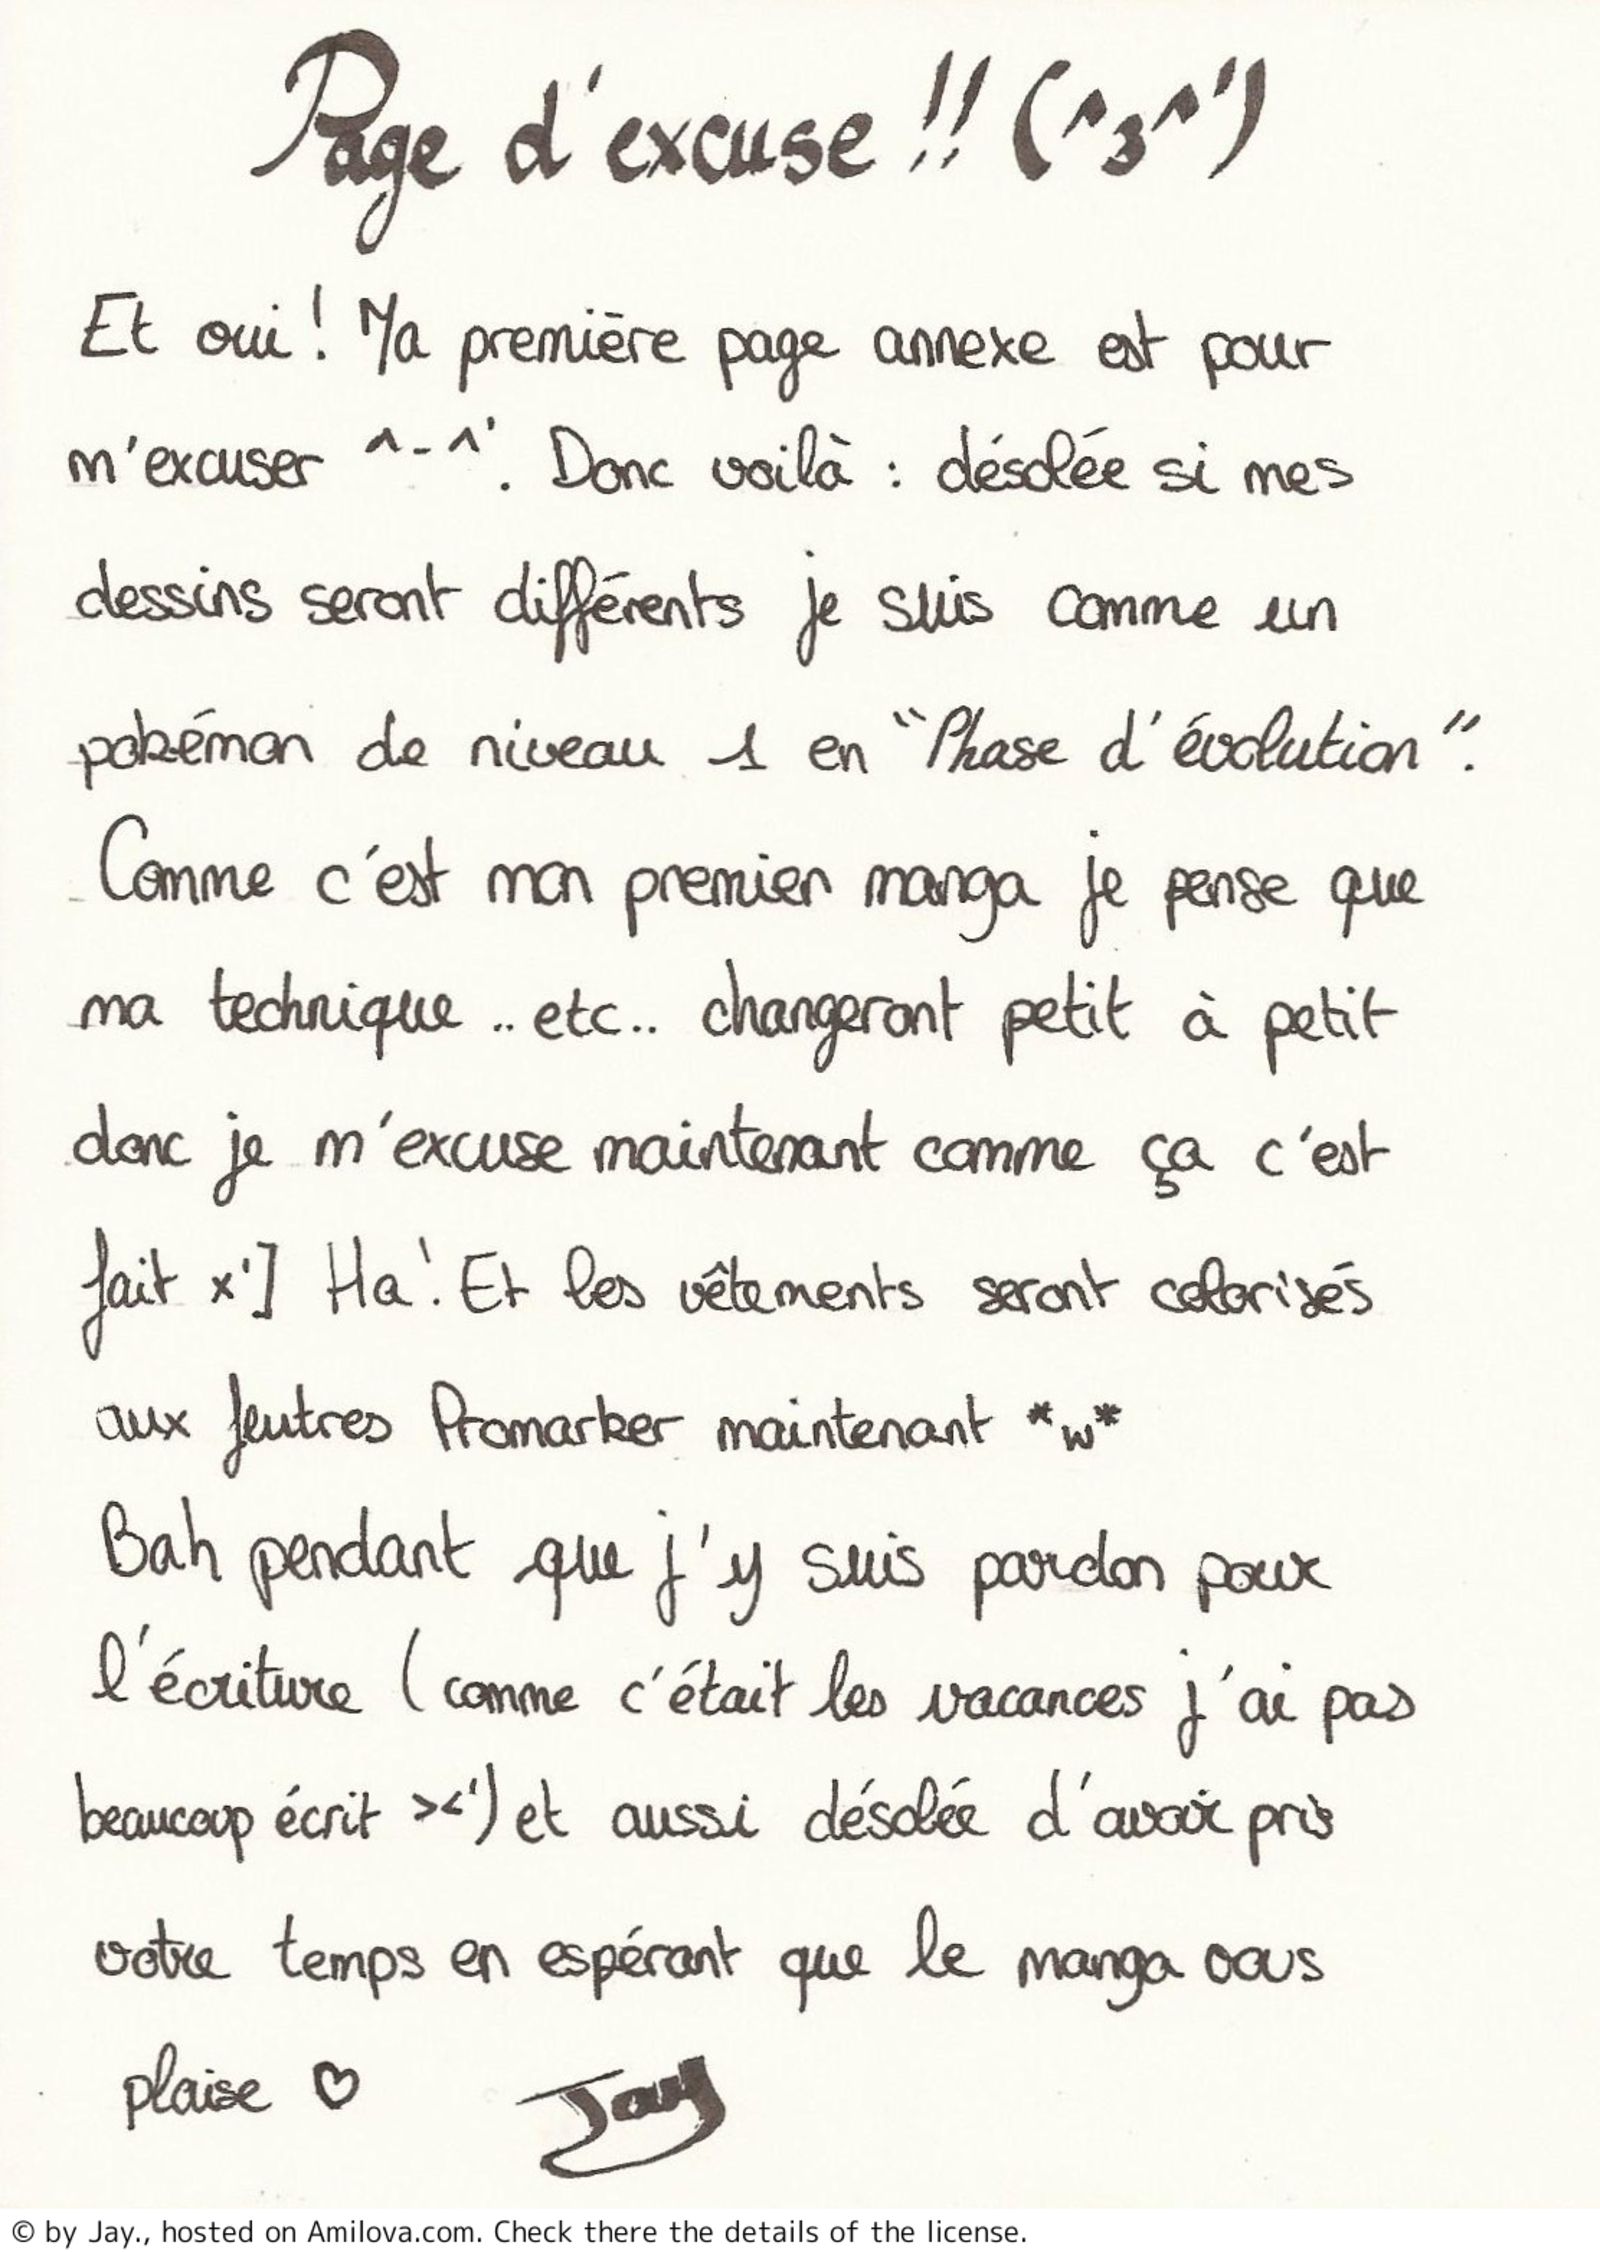 Page d'excuse !! (^3^')
Et oui ! Ma première page annexe est pour
m'excuser ^-^'. Donc voilà : désolée si mes
dessins seront différents je suis comme un
pokémon de niveau 1 en "Phase d'évolution".
Comme c'est mon premier manga je pense que
ma technique .. etc.. changeront petit à petit
donc je m'excuse maintenant comme ça c'est
fait x'] Ha ! Et les vêtements seront colorisés
aux feutres Promarker maintenant *w*
Bah pendant que j'y suis pardon pour
l'écriture (comme c'était les vacances j'ai pas
beaucoup écrit ><') et aussi désolée d'avoir pris
votre temps en espérant que le manga vous
plaise ♡ Jay
© by Jay., hosted on Amilova.com. Check there the details of the license.